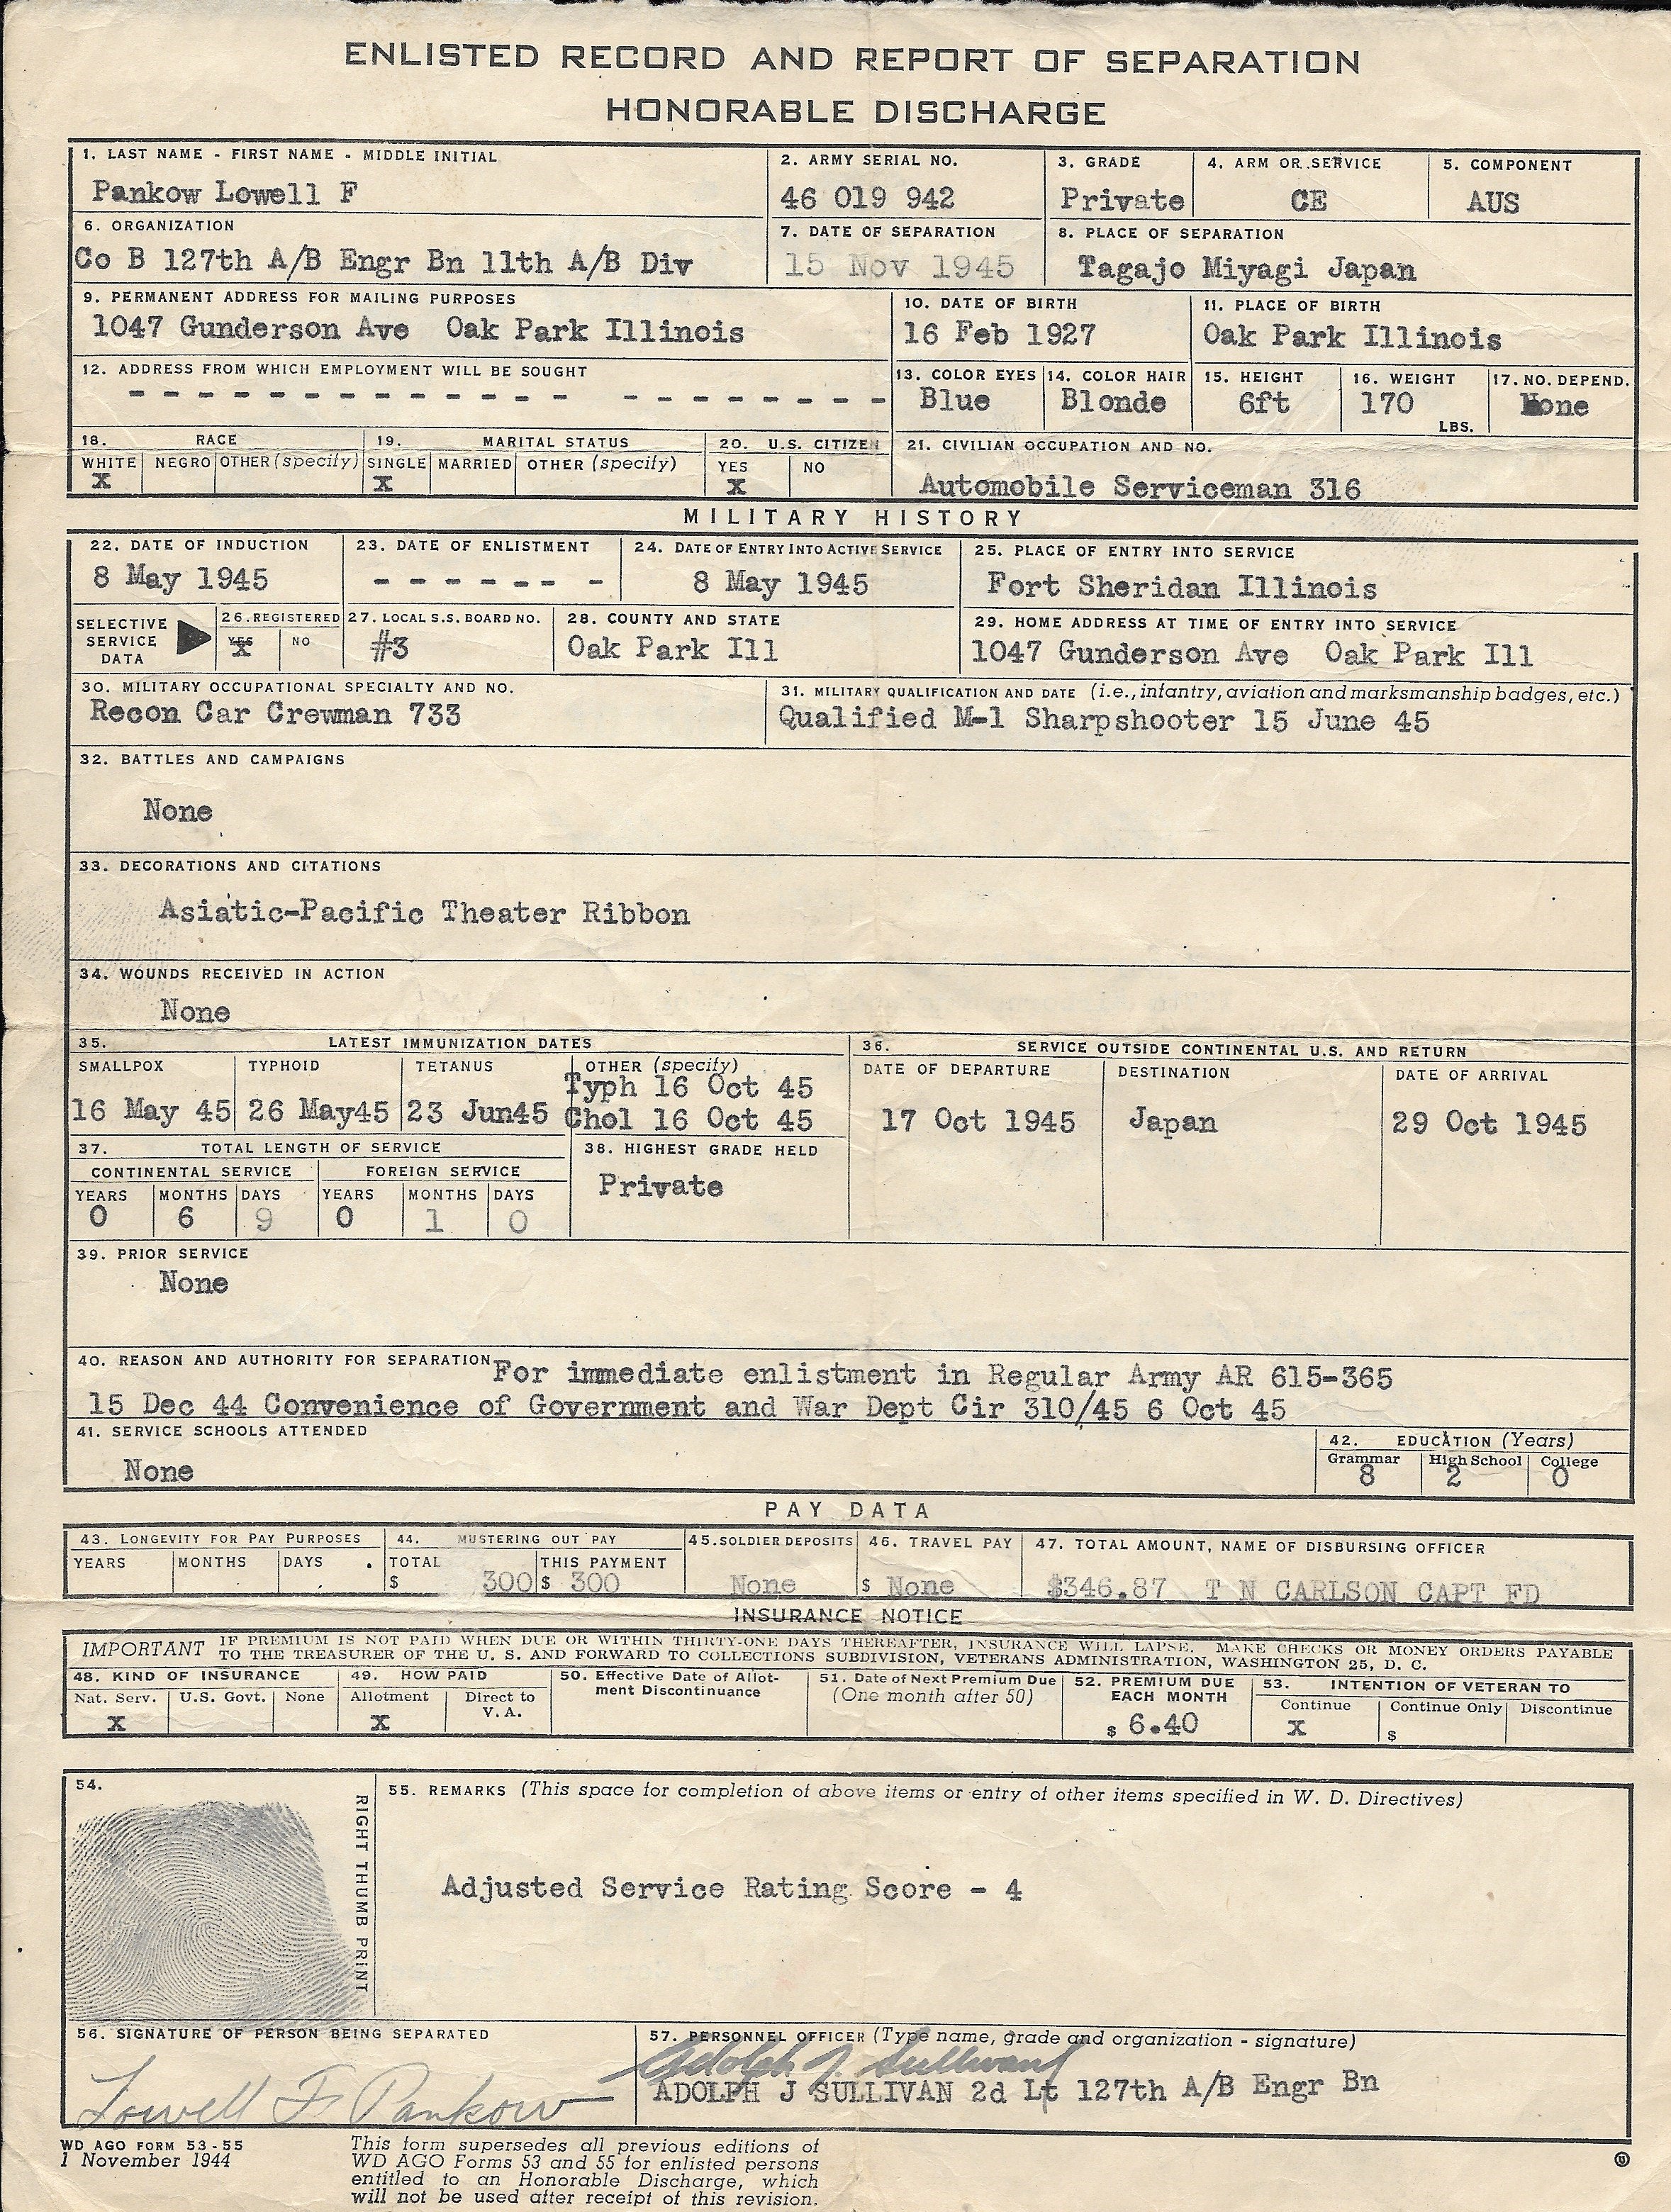 ENLISTED RECORD AND REPORT OF SEPARATION
HONORABLE DISCHARGE
1. LAST NAME - FIRST NAME - MIDDLE INITIAL
Pankow Lowell F
2. ARMY SERIAL NO.
46 019 942
3. GRADE
Private
4. ARM OR SERVICE
CE
5. COMPONENT
AUS
6. ORGANIZATION
Co B 127th A/B Engr Bn 11th A/B Div
7. DATE OF SEPARATION
15 Nov 1945
8. PLACE OF SEPARATION
Tagajo Miyagi Japan
9. PERMANENT ADDRESS FOR MAILING PURPOSES
1047 Gunderson Ave Oak Park Illinois
10. DATE OF BIRTH
16 Feb 1927
11. PLACE OF BIRTH
Oak Park Illinois
12. ADDRESS FROM WHICH EMPLOYMENT WILL BE SOUGHT
- - - - - - - - - - - - - - - - - - - - -
13. COLOR EYES
Blue
14. COLOR HAIR
Blonde
15. HEIGHT
6ft
16. WEIGHT
170
LBS.
17. NO. DEPEND.
None
18. RACE
WHITE NEGRO OTHER (specify)
X
19. MARITAL STATUS
SINGLE MARRIED OTHER (specify)
X
20. U.S. CITIZEN
YES NO
X
21. CIVILIAN OCCUPATION AND NO.
Automobile Serviceman 316
MILITARY HISTORY
22. DATE OF INDUCTION
8 May 1945
23. DATE OF ENLISTMENT
- - - - - - -
24. DATE OF ENTRY INTO ACTIVE SERVICE
8 May 1945
25. PLACE OF ENTRY INTO SERVICE
Fort Sheridan Illinois
SELECTIVE
SERVICE
DATA
26. REGISTERED
YES NO
X
27. LOCAL S.S. BOARD NO.
#3
28. COUNTY AND STATE
Oak Park Ill
29. HOME ADDRESS AT TIME OF ENTRY INTO SERVICE
1047 Gunderson Ave Oak Park Ill
30. MILITARY OCCUPATIONAL SPECIALTY AND NO.
Recon Car Crewman 733
31. MILITARY QUALIFICATION AND DATE (i.e., infantry, aviation and marksmanship badges, etc.)
Qualified M-1 Sharpshooter 15 June 45
32. BATTLES AND CAMPAIGNS
None
33. DECORATIONS AND CITATIONS
Asiatic-Pacific Theater Ribbon
34. WOUNDS RECEIVED IN ACTION
None
35. LATEST IMMUNIZATION DATES
SMALLPOX TYPHOID TETANUS OTHER (specify)
Typh 16 Oct 45
16 May 45 26 May45 23 Jun45 Chol 16 Oct 45
36. SERVICE OUTSIDE CONTINENTAL U.S. AND RETURN
DATE OF DEPARTURE DESTINATION DATE OF ARRIVAL
17 Oct 1945 Japan 29 Oct 1945
37. TOTAL LENGTH OF SERVICE
CONTINENTAL SERVICE FOREIGN SERVICE
YEARS MONTHS DAYS YEARS MONTHS DAYS
0 6 9 0 1 0
38. HIGHEST GRADE HELD
Private
39. PRIOR SERVICE
None
40. REASON AND AUTHORITY FOR SEPARATION For immediate enlistment in Regular Army AR 615-365
15 Dec 44 Convenience of Government and War Dept Cir 310/45 6 Oct 45
41. SERVICE SCHOOLS ATTENDED
None
42. EDUCATION (Years)
Grammar High School College
8 2 0
PAY DATA
43. LONGEVITY FOR PAY PURPOSES
YEARS MONTHS DAYS
44. MUSTERING OUT PAY
TOTAL THIS PAYMENT
$ 300 $ 300
45. SOLDIER DEPOSITS
None
46. TRAVEL PAY
$ None
47. TOTAL AMOUNT, NAME OF DISBURSING OFFICER
$346.87 T N CARLSON CAPT FD
INSURANCE NOTICE
IMPORTANT IF PREMIUM IS NOT PAID WHEN DUE OR WITHIN THIRTY-ONE DAYS THEREAFTER, INSURANCE WILL LAPSE. MAKE CHECKS OR MONEY ORDERS PAYABLE
TO THE TREASURER OF THE U. S. AND FORWARD TO COLLECTIONS SUBDIVISION, VETERANS ADMINISTRATION, WASHINGTON 25, D. C.
48. KIND OF INSURANCE
Nat. Serv. U.S. Govt. None
X
49. HOW PAID
Allotment Direct to
V. A.
X
50. Effective Date of Allot-
ment Discontinuance
51. Date of Next Premium Due
(One month after 50)
52. PREMIUM DUE
EACH MONTH
$ 6.40
53. INTENTION OF VETERAN TO
Continue Continue Only Discontinue
X $
54.
RIGHT THUMB PRINT
55. REMARKS (This space for completion of above items or entry of other items specified in W. D. Directives)
Adjusted Service Rating Score - 4
56. SIGNATURE OF PERSON BEING SEPARATED
Lowell F Pankow
57. PERSONNEL OFFICER (Type name, grade and organization - signature)
Adolph J. Sullivan
ADOLPH J SULLIVAN 2d Lt 127th A/B Engr Bn
WD AGO FORM 53-55
1 November 1944
This form supersedes all previous editions of
WD AGO Forms 53 and 55 for enlisted persons
entitled to an Honorable Discharge, which
will not be used after receipt of this revision.